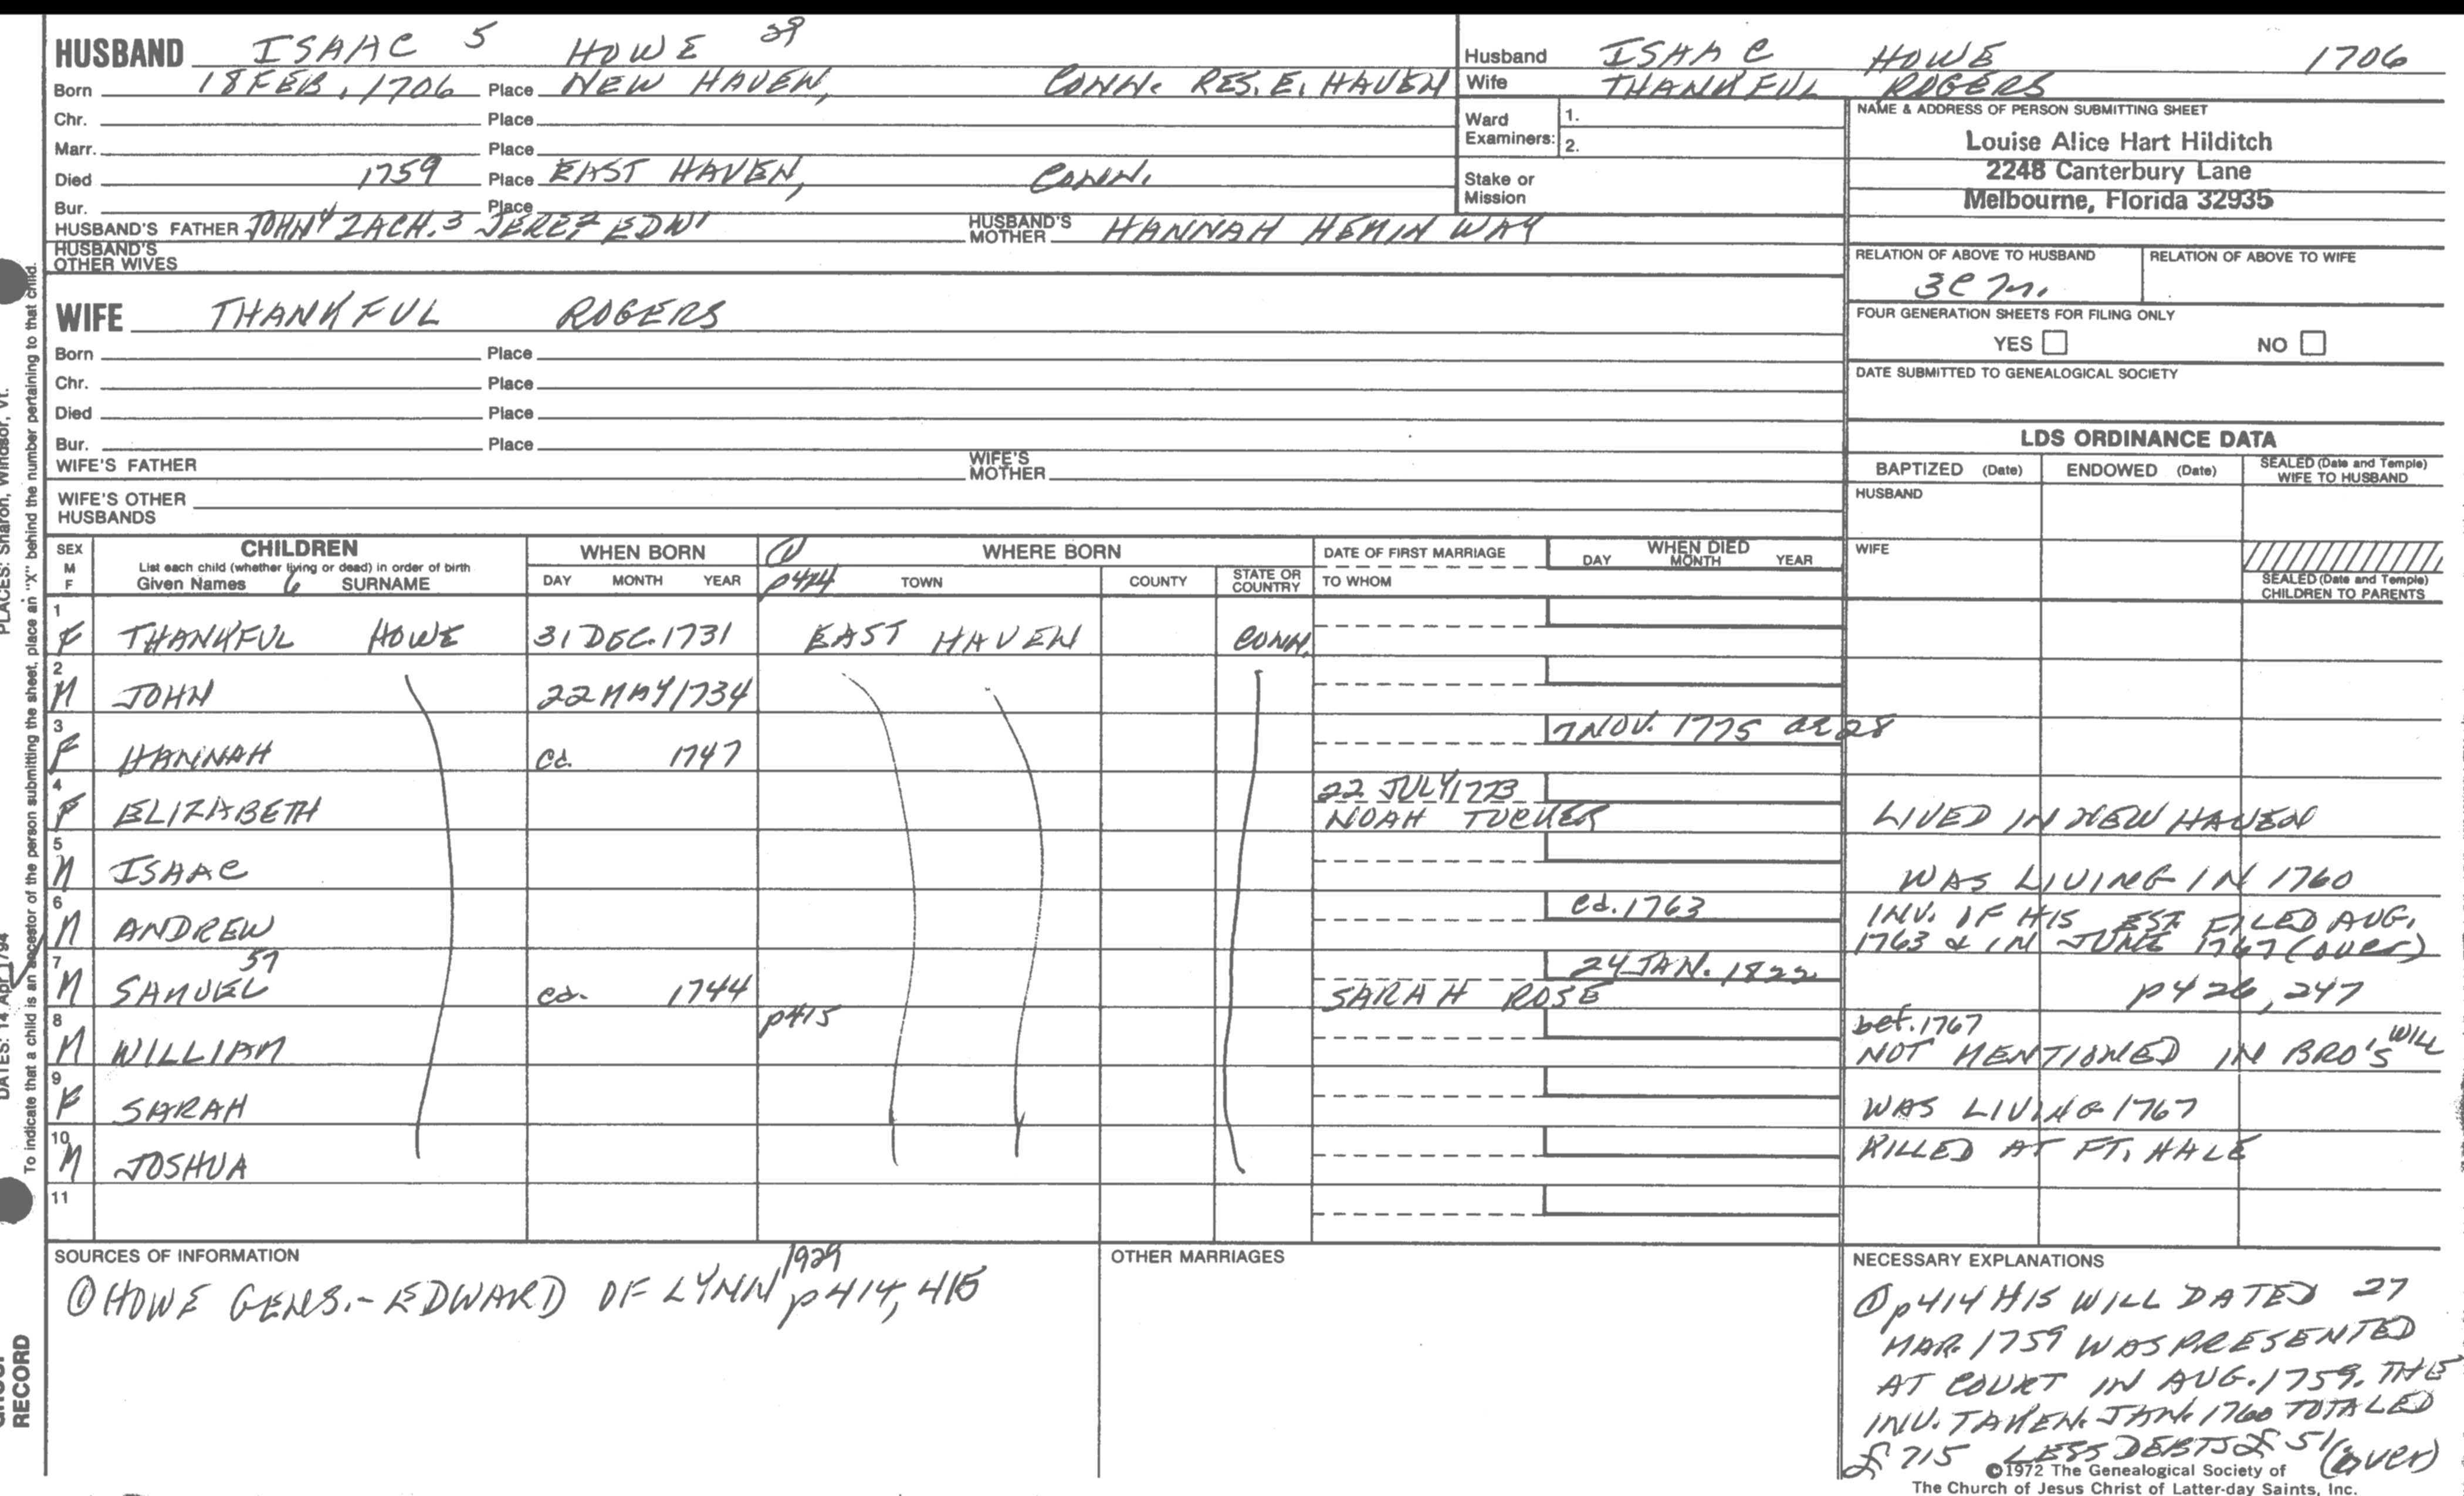 HUSBAND ISAAC 5 HOWE 29
Born 18 FEB. 1706 Place NEW HAVEN, CONN. RES. E. HAVEN
Chr. Place
Marr. Place
Died 1759 Place EAST HAVEN, CONN.
Bur. Place
HUSBAND'S FATHER JOHN4 ZACH.3 JERE2 EDW1 HUSBAND'S MOTHER HANNAH HEMINWAY
HUSBAND'S OTHER WIVES
Husband ISAAC HOWE 1706
Wife THANKFUL ROGERS
Ward Examiners: 1.
2.
Stake or Mission
NAME & ADDRESS OF PERSON SUBMITTING SHEET
Louise Alice Hart Hilditch
2248 Canterbury Lane
Melbourne, Florida 32935
RELATION OF ABOVE TO HUSBAND RELATION OF ABOVE TO WIFE
FOUR GENERATION SHEETS FOR FILING ONLY
YES NO
DATE SUBMITTED TO GENEALOGICAL SOCIETY
WIFE THANKFUL ROGERS
Born Place
Chr. Place
Died Place
Bur. Place
WIFE'S FATHER WIFE'S MOTHER
WIFE'S OTHER HUSBANDS
LDS ORDINANCE DATA
BAPTIZED (Date) ENDOWED (Date) SEALED (Date and Temple) WIFE TO HUSBAND
HUSBAND
WIFE
SEALED (Date and Temple) CHILDREN TO PARENTS
SEX M F
CHILDREN
List each child (whether living or dead) in order of birth
Given Names 6 SURNAME
WHEN BORN
DAY MONTH YEAR
① p424
WHERE BORN
TOWN COUNTY STATE OR COUNTRY
DATE OF FIRST MARRIAGE
TO WHOM
WHEN DIED
DAY MONTH YEAR
1 F THANKFUL HOWE 31 DEC. 1731 EAST HAVEN CONN.
2 M JOHN 22 MAY 1734
3 F HANNAH ca. 1747 7 NOV. 1775 ae 28
4 F ELIZABETH 22 JULY 1773 NOAH TUCKER LIVED IN NEW HAVEN
5 M ISAAC WAS LIVING IN 1760
6 M ANDREW ca. 1763 INV. OF HIS EST FILED AUG.
1763 & IN JUNE 1767 (over)
7 M SAMUEL 57 ca. 1744 SARAH ROSE 24 JAN. 1822 p426, 247
8 M WILLIAM p415 bef. 1767
NOT MENTIONED IN BRO'S WILL
9 F SARAH WAS LIVING 1767
10 M JOSHUA KILLED AT FT. HALE
11
SOURCES OF INFORMATION
① HOWE GENS.- EDWARD OF LYNN 1929 p414, 415
OTHER MARRIAGES
NECESSARY EXPLANATIONS
① p414 HIS WILL DATED 27
MAR. 1759 WAS PRESENTED
AT COURT IN AUG. 1759. THE
INV. TAKEN. JAN. 1760 TOTALED
£715 LESS DEBTS £51 (over)
©1972 The Genealogical Society of
The Church of Jesus Christ of Latter-day Saints, Inc.
PLACES: Sharon, Windsor, Vt.
DATES: 14 Apr 1794
To indicate that a child is an ancestor of the person submitting the sheet, place an "X" behind the number pertaining to that child.
RECORD